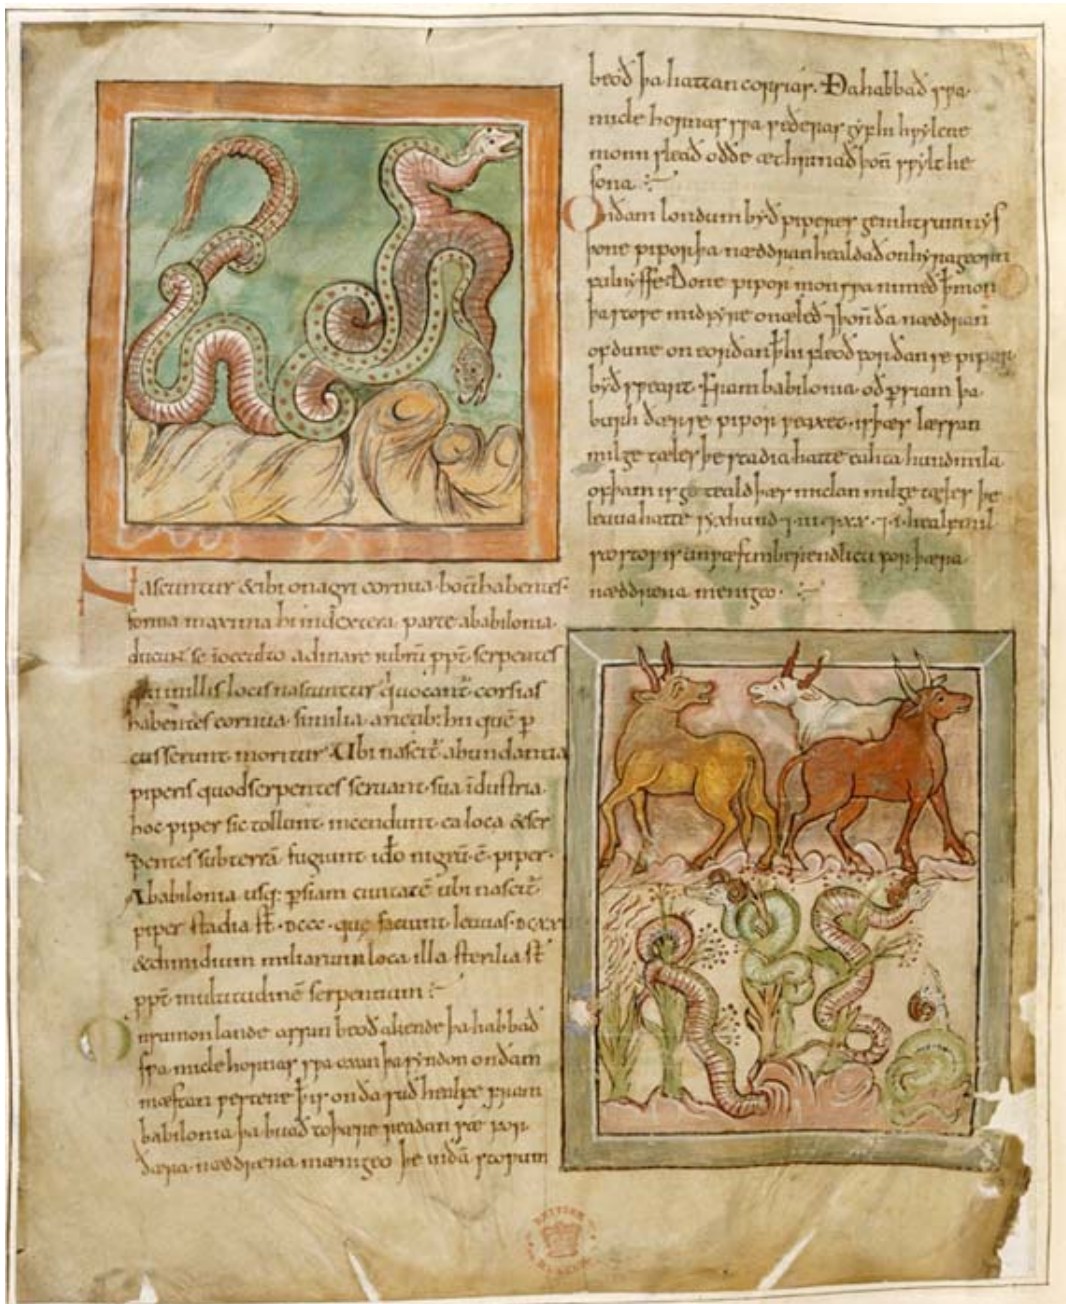 Nascuntur & ibi onagri cornua · boũ habentes ·
forma maxima hi in dextera parte ababilonia ·
ducunt se ĩocculto ad mare rubrũ ppt̃ serpentes
qui in illis locis nascuntur q̇ uocant̃ corsias
habentes cornua · similia arietib: hii quẽ p
cusserunt moritur · Ubi nascit̃ abundantia
piperis quod serpentes seruant · sua ĩdustria ·
hoc piper sic tollunt · incendunt · ea loca & ser
pentes sub terrã · fugiunt · ido nigrũ · ẽ · piper ·
Ababilonia usq; psiam ciuitatẽ ubi nascit̃
piper stadia st̃ · dccc · que faciunt leuuas · dcxx
& dimidium miliarum loca illa sterilia st̃
ppt̃ · multitudinẽ serpentium :
On sumon lande assan beoð akende þa habbað
swa micle hornas swa oxan þa syndon on ðam
mæstan westene þ is on ða suð healfe fram
babilonia þa buað to þære readan sæ for
ðæra · næddrena mænigeo þe in ðã stopum
beoð þa hattan corsias · Ða habbað swa
micle hornas swa weðeras gyf hi hwylcne
monn sleað oððe æthrinað þoñ swylt he
sona :
On ðam londum byð piperes genihtsumnys
þone pipor þa næddran healdað on hyra georn
fulnysse Ðone pipor mon swa nimeð þ mon
þa stope mid fyre onæleð ⁊ þoñ ða næddran
of dune on eorðan þ hi fleoð forðan se pipor
byð sweart · Fram babilonia oð persiam þa
burh ðær se pipor weaxet · is þær læssan
milge tæles þe stadia hatte eahta hund mila
of þam is geteald þær miclan milge tæles þe
leuua hatte syx hund · ⁊ · iii · ⁊ · xx · ⁊ · i · healf mil
seo stop is unwæstmbærendlicu for þæra
næddrena menigeo ·